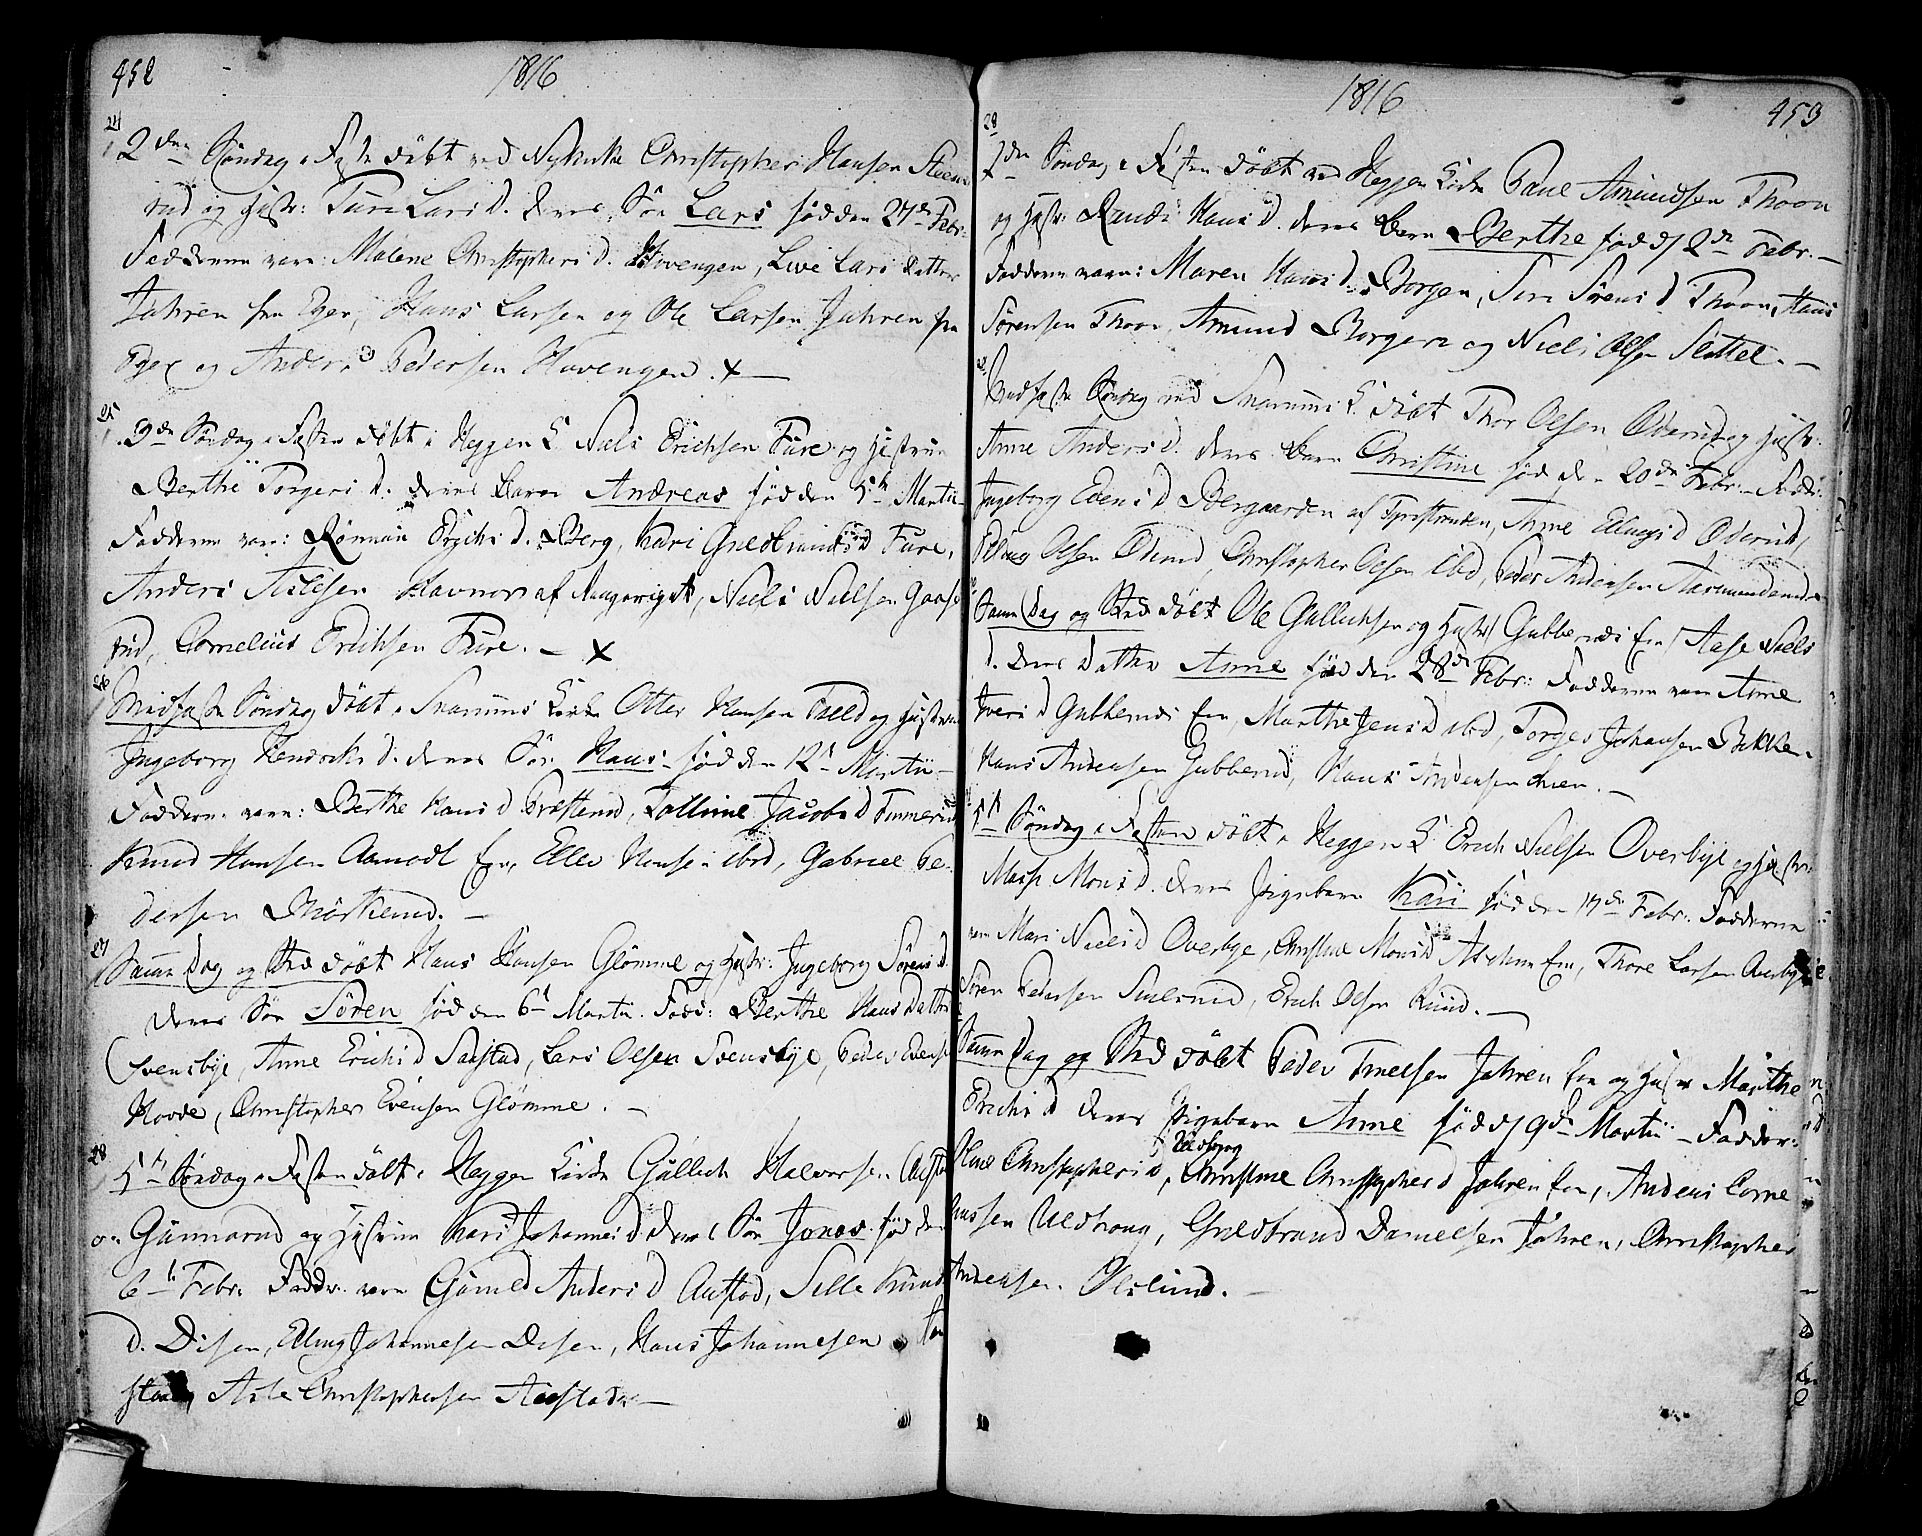 452
1816
24
2den Søndag i Faste døbt ved Nykirke Christopher Hansen Steens
rud og Hustr: Turi Lars D. deres Søn Lars fød den 27de Febr:
Fadderne vare: Malene Christophers d. Hovengen, Live Lars datter
Jahren fra Eger, Hans Larsen og Ole Larsen Jahren fra
Eger og Anders Pedersen Hovengen. x
25
3de Søndag i Fasten døbt i Heggen K. Niels Erichsen Fure og Hustrue
Berthe Torgers D. deres Barn Andreas fød den 5te Martii
Fadderne vare: Erichs D. Berg, Kari Guldbrands D Fure,
Anders Aslesen Havnor af Niels Nielsen Gaase
rud, Cornelius Erichsen Fure. - x
26
Midfaste Søndag døbt i Snarums Kirke Otter Hansen Field og Hustrue
Ingeborg Hendrichs D. deres Søn Hans fød den 12t Martii
Fadderne vare: Berthe Hans D Præsterud, Jacobs D
Knud Hansen Aamodt Eie, Ellev Hansen ibid, Gabriel Pe-
dersen
27
Samme Dag og Sted døbt Hans Hansen Glømme og Hustr: Ingeborg Sørens D.
deres Søn Søren fød den 6t Martii. Fadd: Berthe Hans Datter
Svensbye, Anne Erichs D Saastad, Lars Olsen Svensbye, Peder Evens
Hovde, Christopher Evensen Glømme. -
28
5te Søndag i Fasten døbt i Heggen Kirke Gullich Halvorsen
Gunnarud og Hustrue Kari Johannes D. deres Søn Jonas fød den
6te Febr. Fadder. vare Gunild Anders D Austad, Sille Knuds
D. Disen, Elling Johannesen Disen, Hans Johannesen Au
stad, Asle Christophersen Austad
1816
453
28
Søndag i Fasten døbt ved Heggen Kirke Povel Amundsen Thoon
og Hustr: Randi Hans D. deres Barn Berthe fød d 2de Febr. -
Fadderne vare: Maren Hans D. Borgen, Siri Sørens D Thoon, Hans
Sørensen Thoon, Amund Borgen og Niels Olsen Slettel. -
Midfaste Søndag ved Snarums K. døbt Thor Olsen Øderud og Hustr:
Anne Anders D. deres Barn Christine fød den 20de Febr. - Fadd:
Ingeborg Evens D Bergaarden af Tyristranden, Anne Ellings D Øderud,
Elling Olsen Øderud, Christopher Olsen ibid, Peder Andersen
Samme Dag og Sted døbt Ole Gullichsen og Hustr (Gubberuds Eie) Aase Niels
D. deres Datter Anne fød den 28de Febr: Fadderne vare Anne
Ivers D Gubberuds Eie, Marthe Jens D ibid, Torger Johansen Bakke
Hans Andersen Gubberud, Hans Andersen
5te Søndag i Fasten døbt i Heggen K. Erich Nielsen Overbye og Hustr:
Mons D. deres Pigebarn Kari fød den 17de Febr. Fadderne
vare Mari Niels D Overbye, Christine Mons D Eie, Thore Larsen Overbye
Søren Pedersen Erich Olsen Ruud. -
Samme Dag og Sted døbt Peder Truelsen Jahren Eie og Hustr Marthe
Erichs D deres Pigebarn Anne fød d 9de Martii - Fadder:
Christophers D, Christine Christophers D Jahren Eie, Anders Corne
liussen Guldbrand Danielsen Jahren, Christopher
Andersen